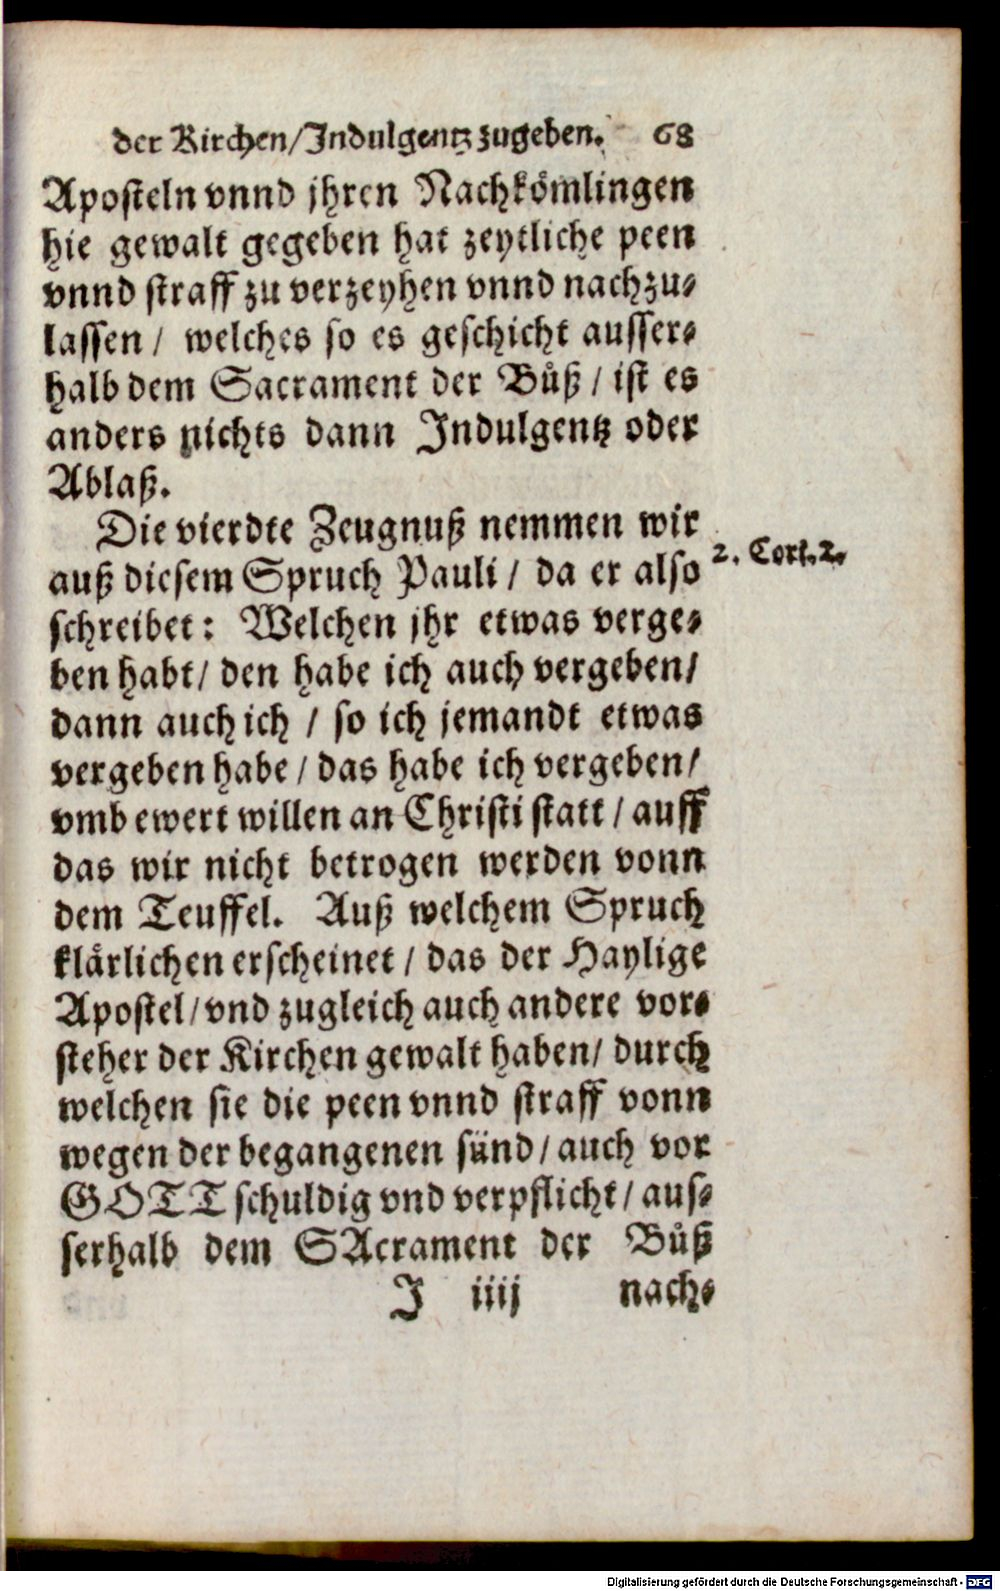 der Kirchen/Indulgentz zugeben. 68
Aposteln vnnd jhren Nachkömlingen
hie gewalt gegeben hat zeytliche peen
vnnd straff zu verzeyhen vnnd nachzu-
lassen / welches so es geschicht ausser-
halb dem Sacrament der Bůß / ist es
anders nichts dann Indulgentz oder
Ablaß.
Die vierdte Zeugnuß nemmen wir
2. Cori. 2.
auß diesem Spruch Pauli / da er also
schreibet: Welchen jhr etwas verge-
ben habt/ den habe ich auch vergeben/
dann auch ich / so ich jemandt etwas
vergeben habe / das habe ich vergeben/
vmb ewert willen an Christi statt / auff
das wir nicht betrogen werden vonn
dem Teuffel. Auß welchem Spruch
klärlichen erscheinet / das der Haylige
Apostel/ vnd zugleich auch andere vor-
steher der Kirchen gewalt haben/ durch
welchen sie die peen vnnd straff vonn
wegen der begangenen sünd / auch vor
GOTT schuldig vnd verpflicht / aus-
serhalb dem SAcrament der Bůß
J iiij nach-
Digitalisierung gefördert durch die Deutsche Forschungsgemeinschaft - DFG